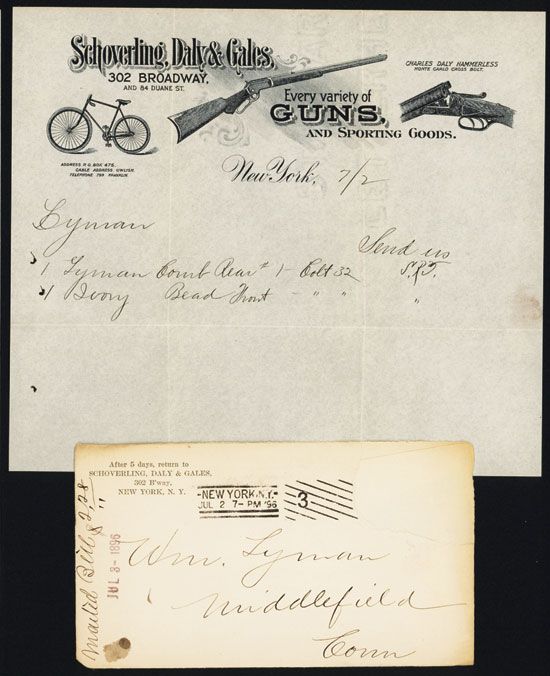 Schoverling, Daly & Gales,
302 BROADWAY,
AND 84 DUANE ST.
ADDRESS P.O. BOX 475.
CABLE ADDRESS
TELEPHONE 759 FRANKLIN.
Every variety of
GUNS,
AND SPORTING GOODS.
CHARLES DALY HAMMERLESS
MONTE CARLO CROSS BOLT.
New York, 7/2
Lyman
Send us
1 Lyman Comb Rear # 1 - Colt 32
1 Ivory Bead Front - " " "
After 5 days, return to
SCHOVERLING, DALY & GALES,
302 B'way,
NEW YORK, N. Y.
NEW YORK, N.Y.
JUL 2 7-PM '96
3
Mailed Bill
JUL 3- 1896
Wm. Lyman
Middlefield
Conn